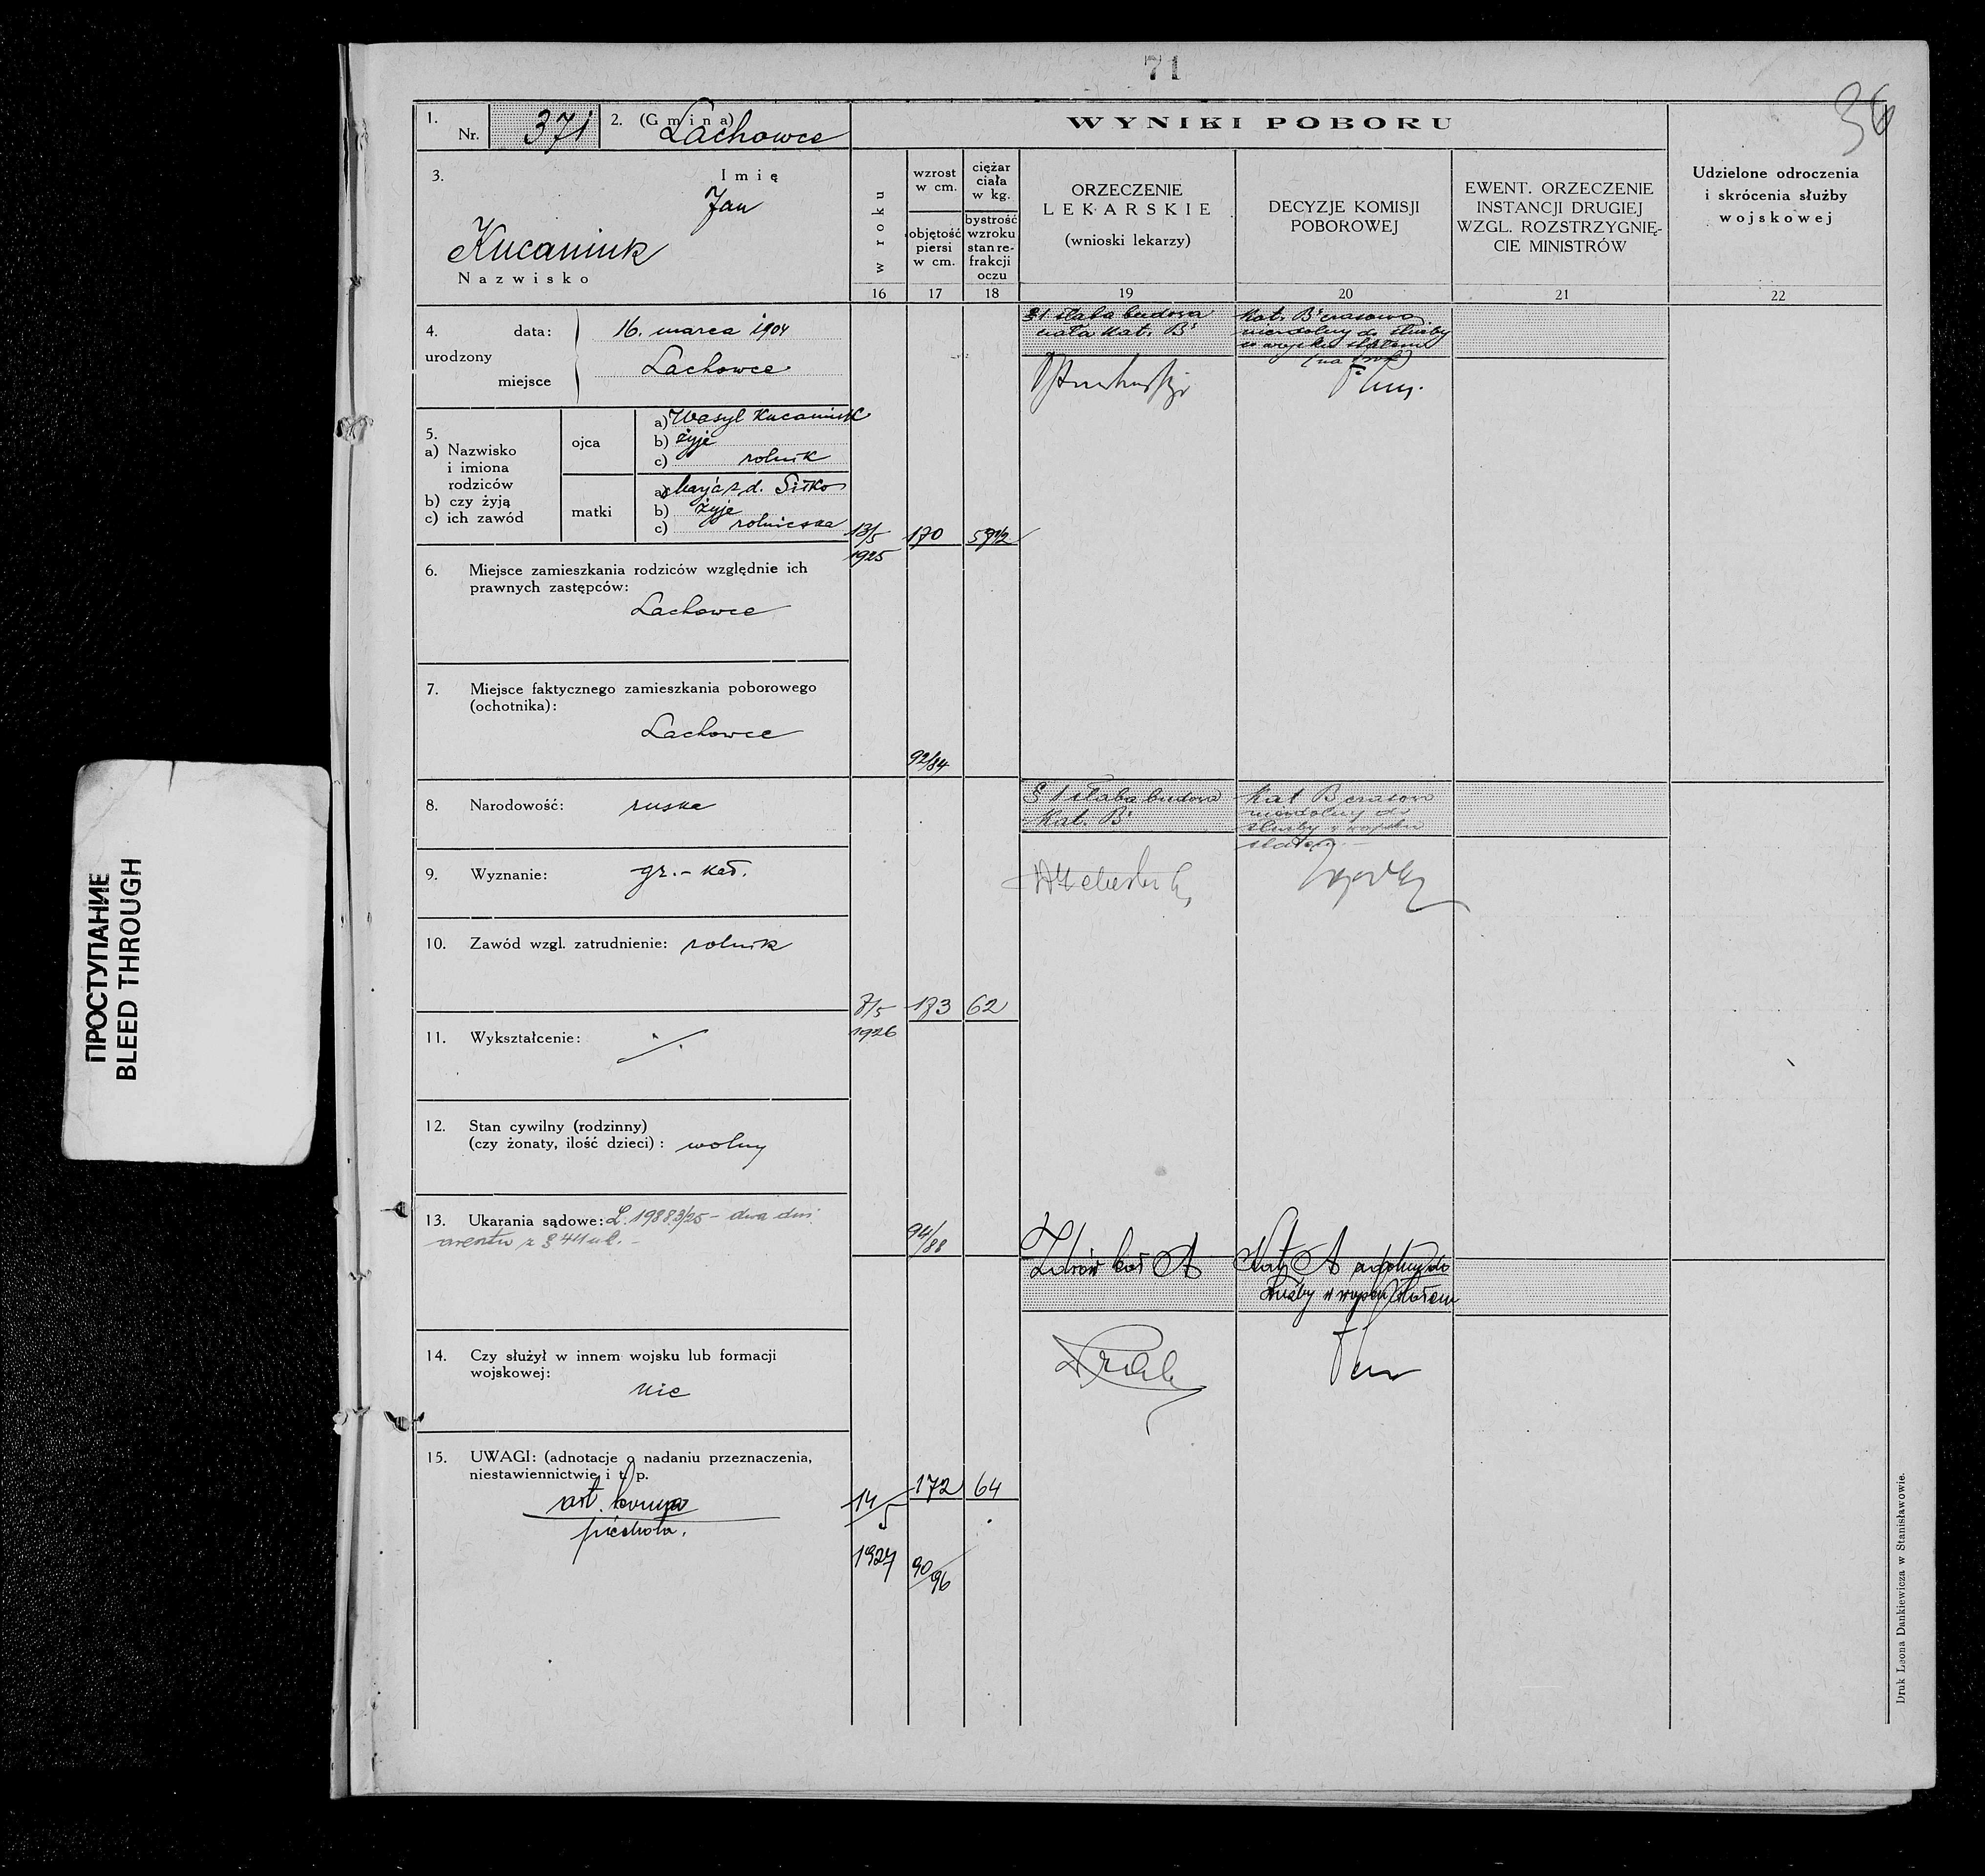 71
36
1. Nr. 371 2. (Gmina) Lachowce
3. Imię
Jan
Kucaniuk
Nazwisko
4. urodzony
data: 16. marca 1904
miejsce Lachowce
5.
a) Nazwisko i imiona rodziców
b) czy żyją
c) ich zawód
ojca
a) Wasyl Kucaniuk
b) żyje
c) rolnik
matki
a) Marja z d. Sitko
b) żyje
c) rolniczka
6. Miejsce zamieszkania rodziców względnie ich
prawnych zastępców:
Lachowce
7. Miejsce faktycznego zamieszkania poborowego
(ochotnika):
Lachowce
8. Narodowość: ruska
9. Wyznanie: gr.-kat.
10. Zawód wzgl. zatrudnienie: rolnik
11. Wykształcenie: ./.
12. Stan cywilny (rodzinny)
(czy żonaty, ilość dzieci): wolny
13. Ukarania sądowe: L. 19883/25 – dwa dni
aresztu z § 411 u.k. –
14. Czy służył w innem wojsku lub formacji
wojskowej:
nie
15. UWAGI: (adnotacje o nadaniu przeznaczenia,
niestawiennictwie i t. p.
art. konna
piechota.
WYNIKI POBORU
w roku
16
wzrost
w cm.
objętość
piersi
w cm.
17
ciężar
ciała
w kg.
bystrość
wzroku
stan re-
frakcji
oczu
18
ORZECZENIE
LEKARSKIE
(wnioski lekarzy)
19
DECYZJE KOMISJI
POBOROWEJ
20
EWENT. ORZECZENIE
INSTANCJI DRUGIEJ
WZGL. ROZSTRZYGNIĘ-
CIE MINISTRÓW
21
Udzielone odroczenia
i skrócenia służby
wojskowej
22
§ 1 słaba budowa
ciała Kat. B'
Kat. B' czasowo
niezdolny do służby
w wojsku stałem
(na rok)
13/5
1925
170
57 1/2
92/84
§ 1 słaba budowa
Kat. B'
Kat B czasowo
niezdolny do
służby w wojsku
stałem. –
7/5
1926
173
62
94/88
Zdrów kat A
Kat A zdolny do
służby w wojsku stałem
14/5
1927
172
64
90/96
Druk Leona Dankiewicza w Stanisławowie.
ПРОСТУПАНИЕ
BLEED THROUGH